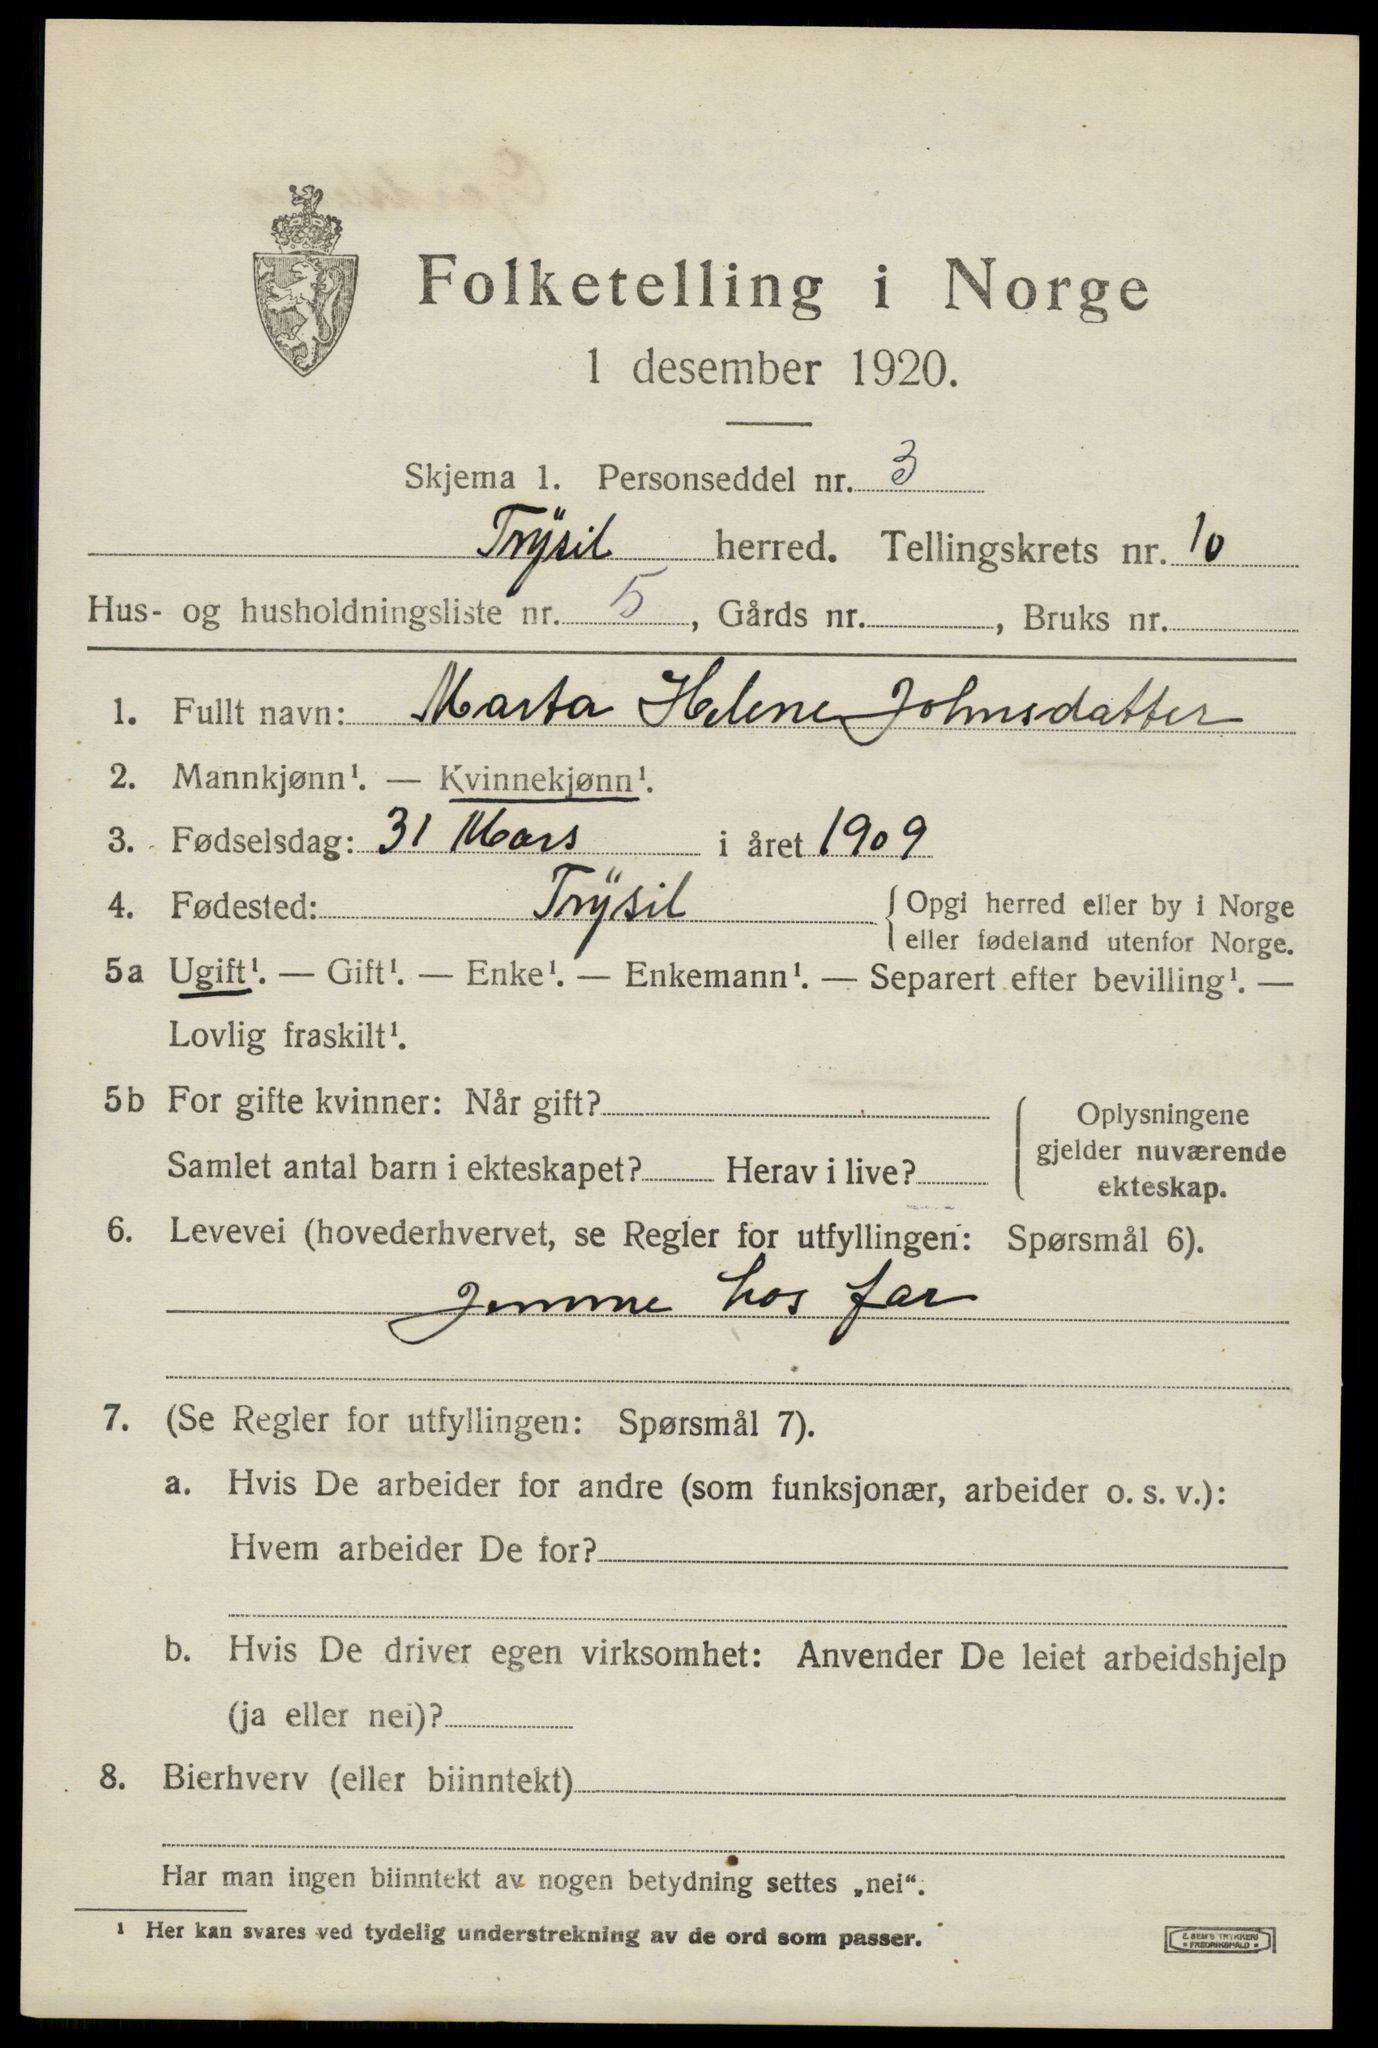 Folketelling i Norge
1 desember 1920.
Skjema 1. Personseddel nr. 3
Trysil herred. Tellingskrets nr. 10
Hus- og husholdningsliste nr. 5, Gårds nr. , Bruks nr.
1. Fullt navn: Marta Helene Johnsdatter
2. Mannkjønn¹. — Kvinnekjønn¹.
3. Fødselsdag: 31 Mars i året 1909
4. Fødested: Trysil {Opgi herred eller by i Norge
eller fødeland utenfor Norge.
5a Ugift¹. — Gift¹. — Enke¹. — Enkemann¹. — Separert efter bevilling¹. —
Lovlig fraskilt¹.
5b For gifte kvinner: Når gift? {Oplysningene
gjelder nuværende
Samlet antal barn i ekteskapet? Herav i live? ekteskap.
6. Levevei (hovederhvervet, se Regler for utfyllingen: Spørsmål 6).
Jemme hos far
7. (Se Regler for utfyllingen: Spørsmål 7).
a. Hvis De arbeider for andre (som funksjonær, arbeider o. s. v.):
Hvem arbeider De for?
b. Hvis De driver egen virksomhet: Anvender De leiet arbeidshjelp
(ja eller nei)?
8. Bierhverv (eller biinntekt)
Har man ingen biinntekt av nogen betydning settes „nei“.
¹ Her kan svares ved tydelig understrekning av de ord som passer.
E. SEM'S TRYKKERI
• FREDRIKSHALD •